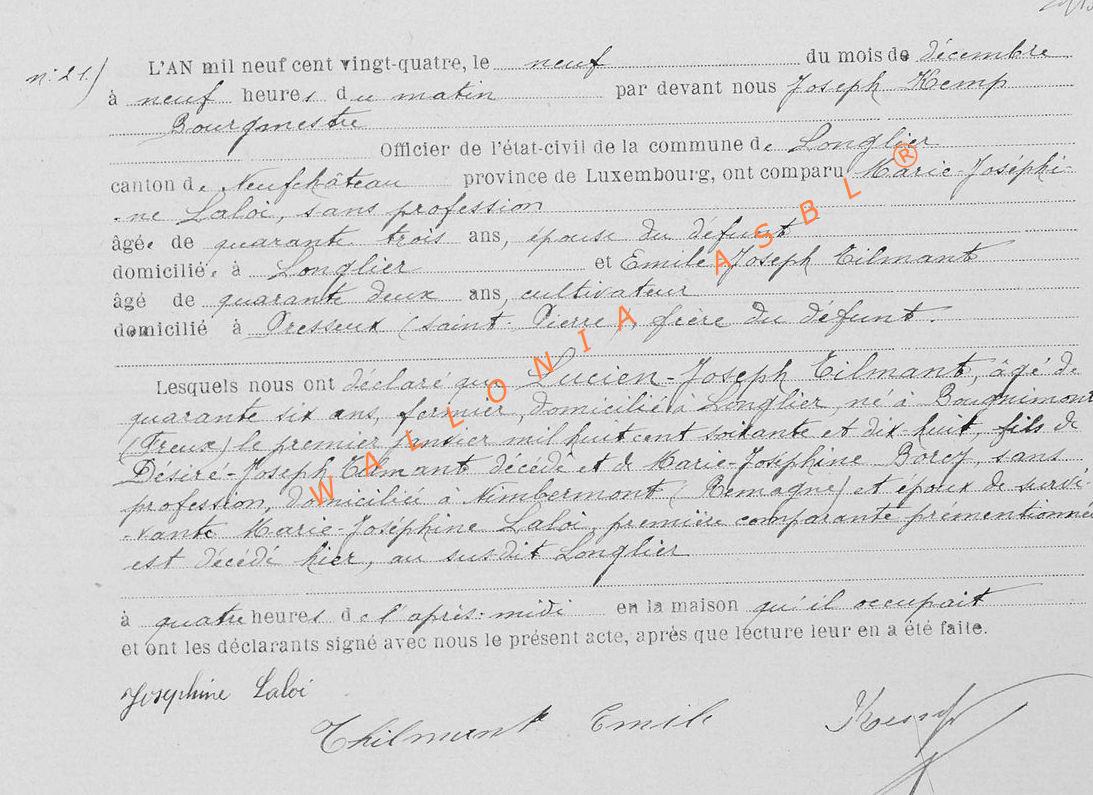 n: 21)
L'AN mil neuf cent vingt-quatre, le neuf du mois de décembre
à neuf heures du matin par devant nous Joseph Kemp
Bourgmestre
Officier de l'état-civil de la commune de Longlier
canton de Neufchâteau province de Luxembourg, ont comparu Marie-Joséphi-
-ne Laloi, sans profession
âgée de quarante trois ans, épouse du défunt
domiciliée à Longlier et Emile-Joseph Tilmant
âgé de quarante deux ans, cultivateur
domicilié à Presseux (saint-Pierre), frère du défunt.
Lesquels nous ont déclaré que Lucien-Joseph Tilmant, âgé de
quarante six ans, fermier, domicilié à Longlier, né à Bouquimont
(Freux) le premier janvier mil huit cent soixante et dix huit, fils de
Désiré-Joseph Tilmant décédé et de Marie-Joséphine Borcy, sans
profession, domiciliée à Nimbermont (Remagne) et époux de survi-
-vante Marie-Joséphine Laloi, première comparante prémentionnée
est décédé hier, au susdit Longlier
à quatre heures de l'après-midi en la maison qu'il occupait
et ont les déclarants signé avec nous le présent acte, après que lecture leur en a été faite.
Josephine Laloi
Thilmant Emile
Kemp
WALLONIA ASBL ®